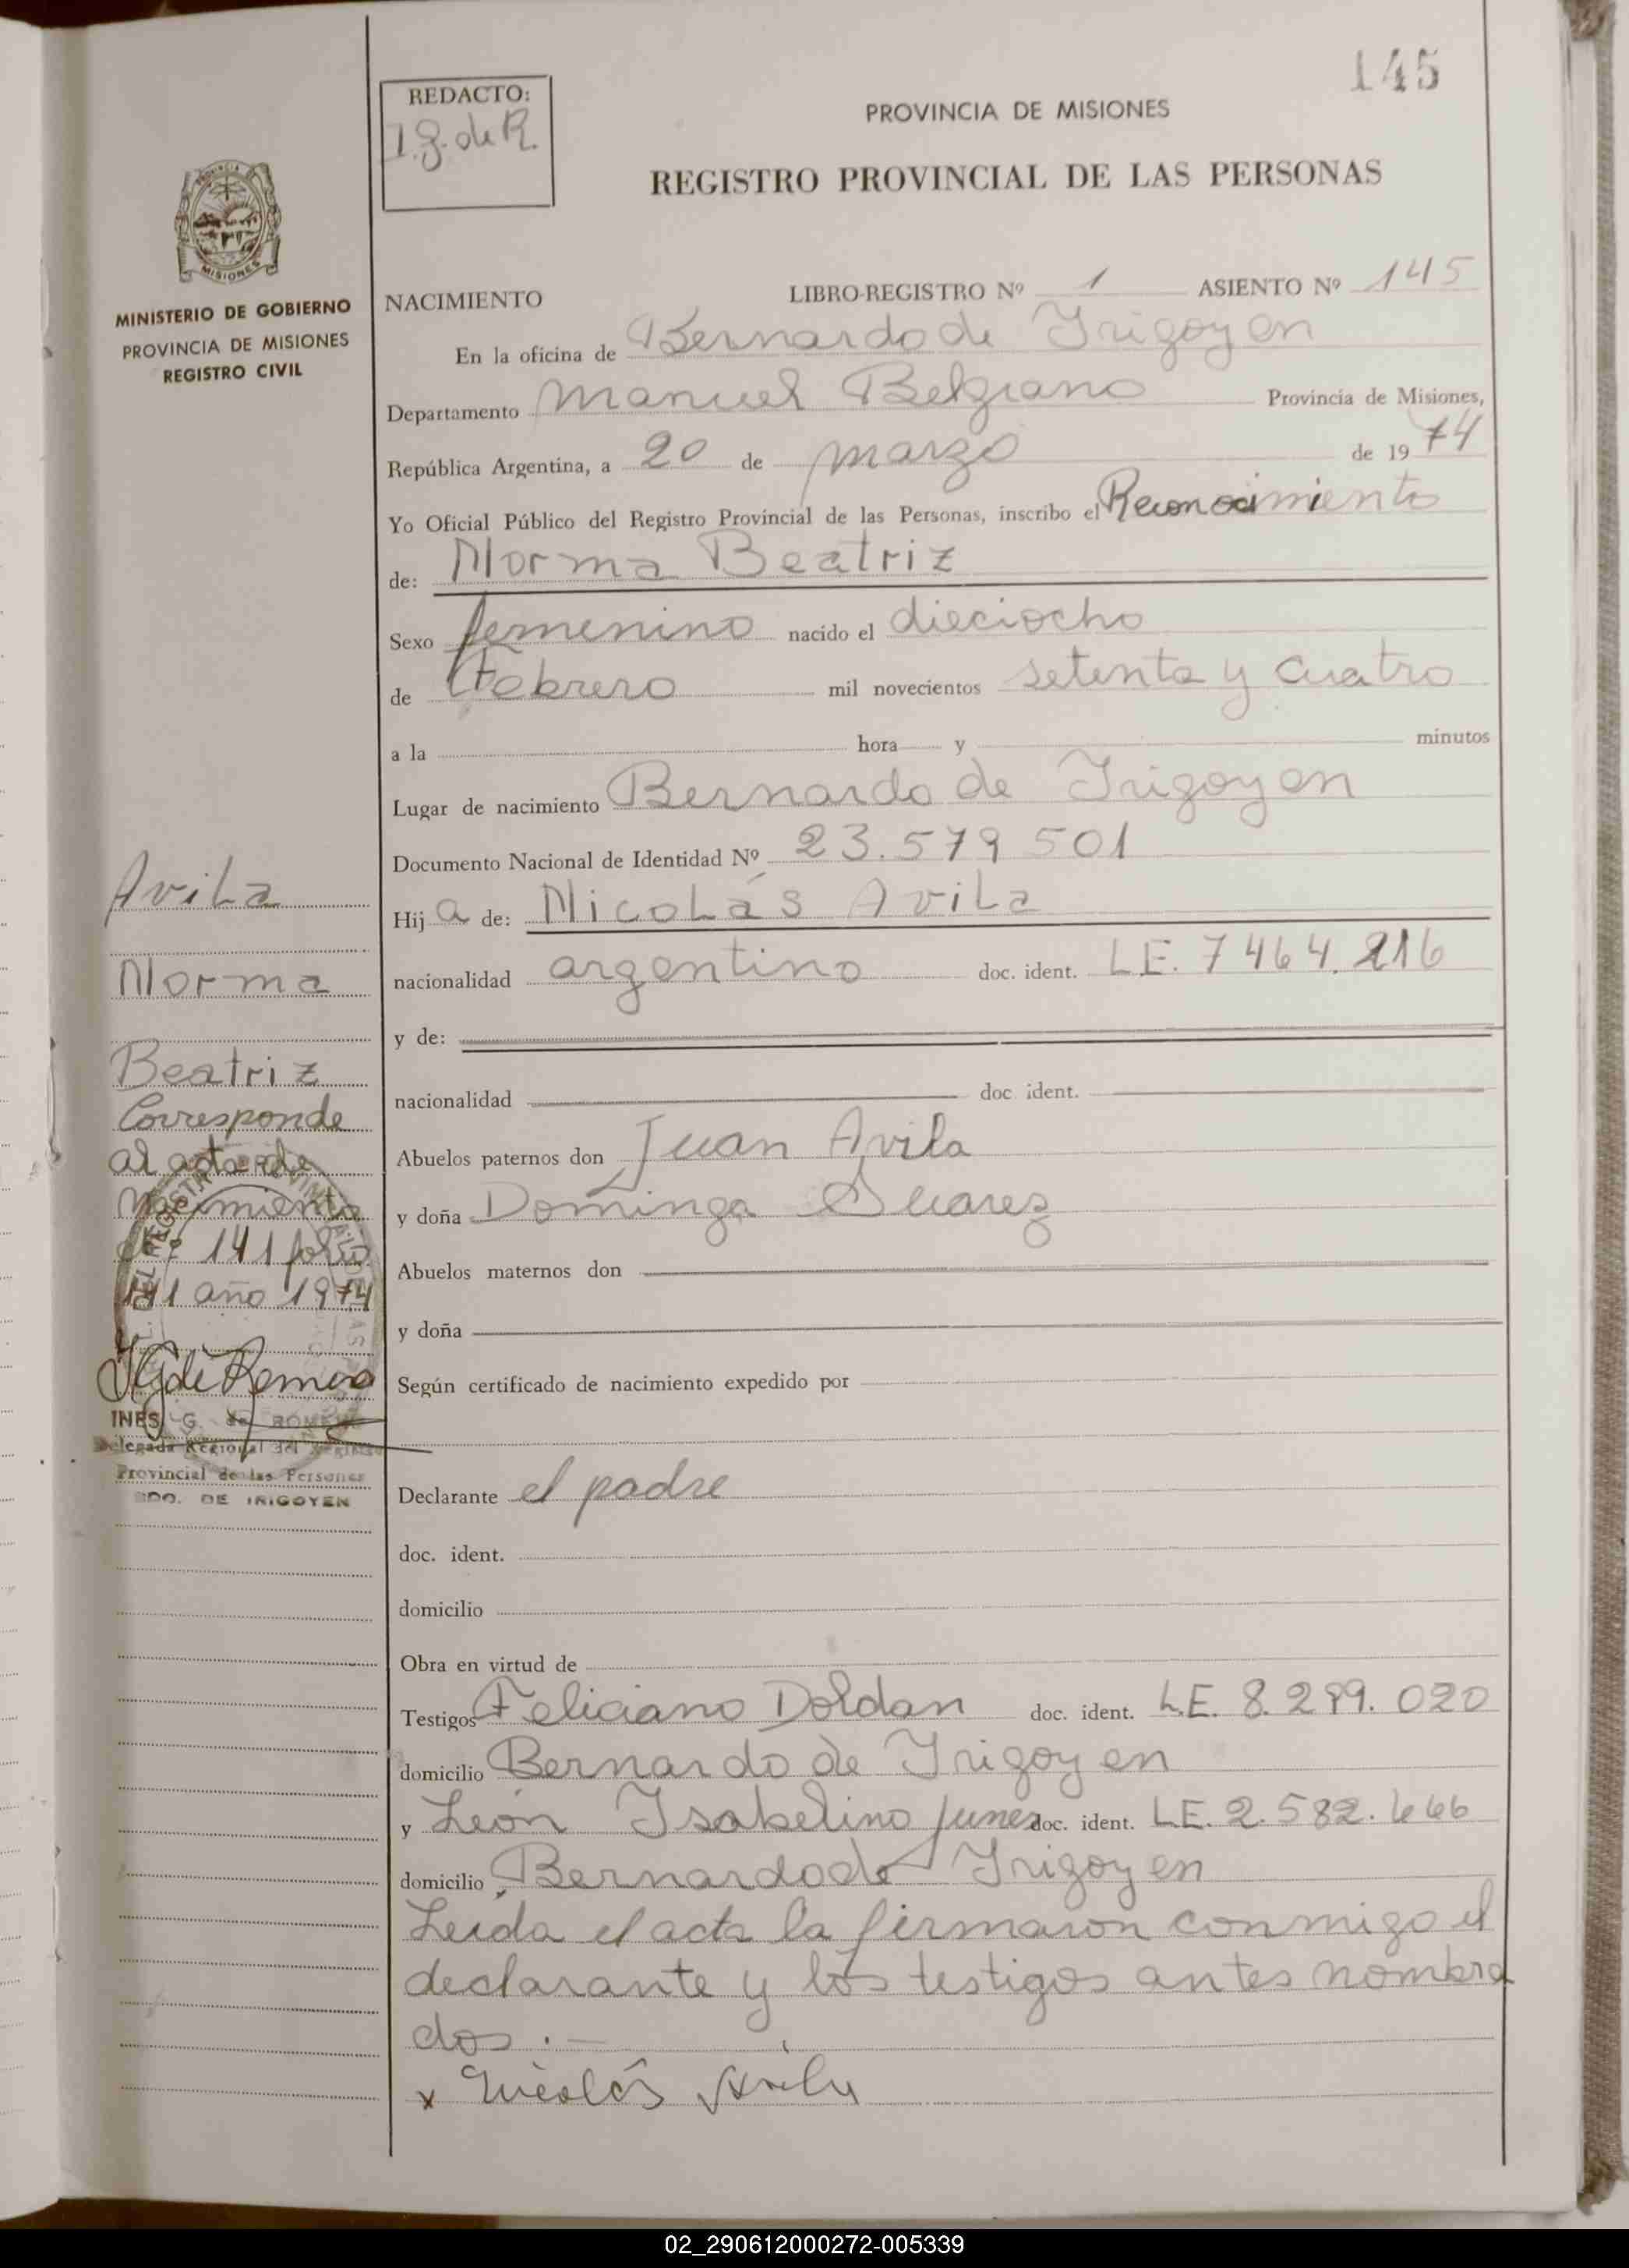 145
REDACTO:
I.G. de R.
PROVINCIA DE MISIONES
REGISTRO PROVINCIAL DE LAS PERSONAS
MISIONES
MINISTERIO DE GOBIERNO
PROVINCIA DE MISIONES
REGISTRO CIVIL
NACIMIENTO LIBRO-REGISTRO Nº 1 ASIENTO Nº 145
En la oficina de Bernardo de Irigoyen
Departamento Manuel Belgrano Provincia de Misiones,
República Argentina, a 20 de marzo de 1974
Yo Oficial Público del Registro Provincial de las Personas, inscribo el Reconocimiento
de: Norma Beatriz
Sexo femenino nacido el dieciocho
de Febrero mil novecientos setenta y cuatro
a la hora y minutos
Lugar de nacimiento Bernardo de Irigoyen
Documento Nacional de Identidad Nº 23.579 501
Hija de: Nicolás Avila
nacionalidad argentino doc. ident. LE. 7464.216
y de:
nacionalidad doc ident.
Abuelos paternos don Juan Avila
y doña Dominga Suarez
Abuelos maternos don
y doña
Según certificado de nacimiento expedido por
Declarante el padre
doc. ident.
domicilio
Obra en virtud de
Testigos Feliciano Doldan doc. ident. L.E. 8.299.020
domicilio Bernardo de Irigoyen
y León Isabelino Junes doc. ident. LE. 2.582.466
domicilio Bernardo de Irigoyen
Leida el acta la firmaron conmigo el
declarante y los testigos antes nombra
dos.—
x Nicolás Avila
Avila
Norma
Beatriz
Corresponde
al acta de
Nacimiento
nº 141 folio
141 año 1974
IG de Romero
INES G. de ROMERO
Delegada Regional del Registro
Provincial de las Personas
BDO. DE IRIGOYEN
02_290612000272-005339